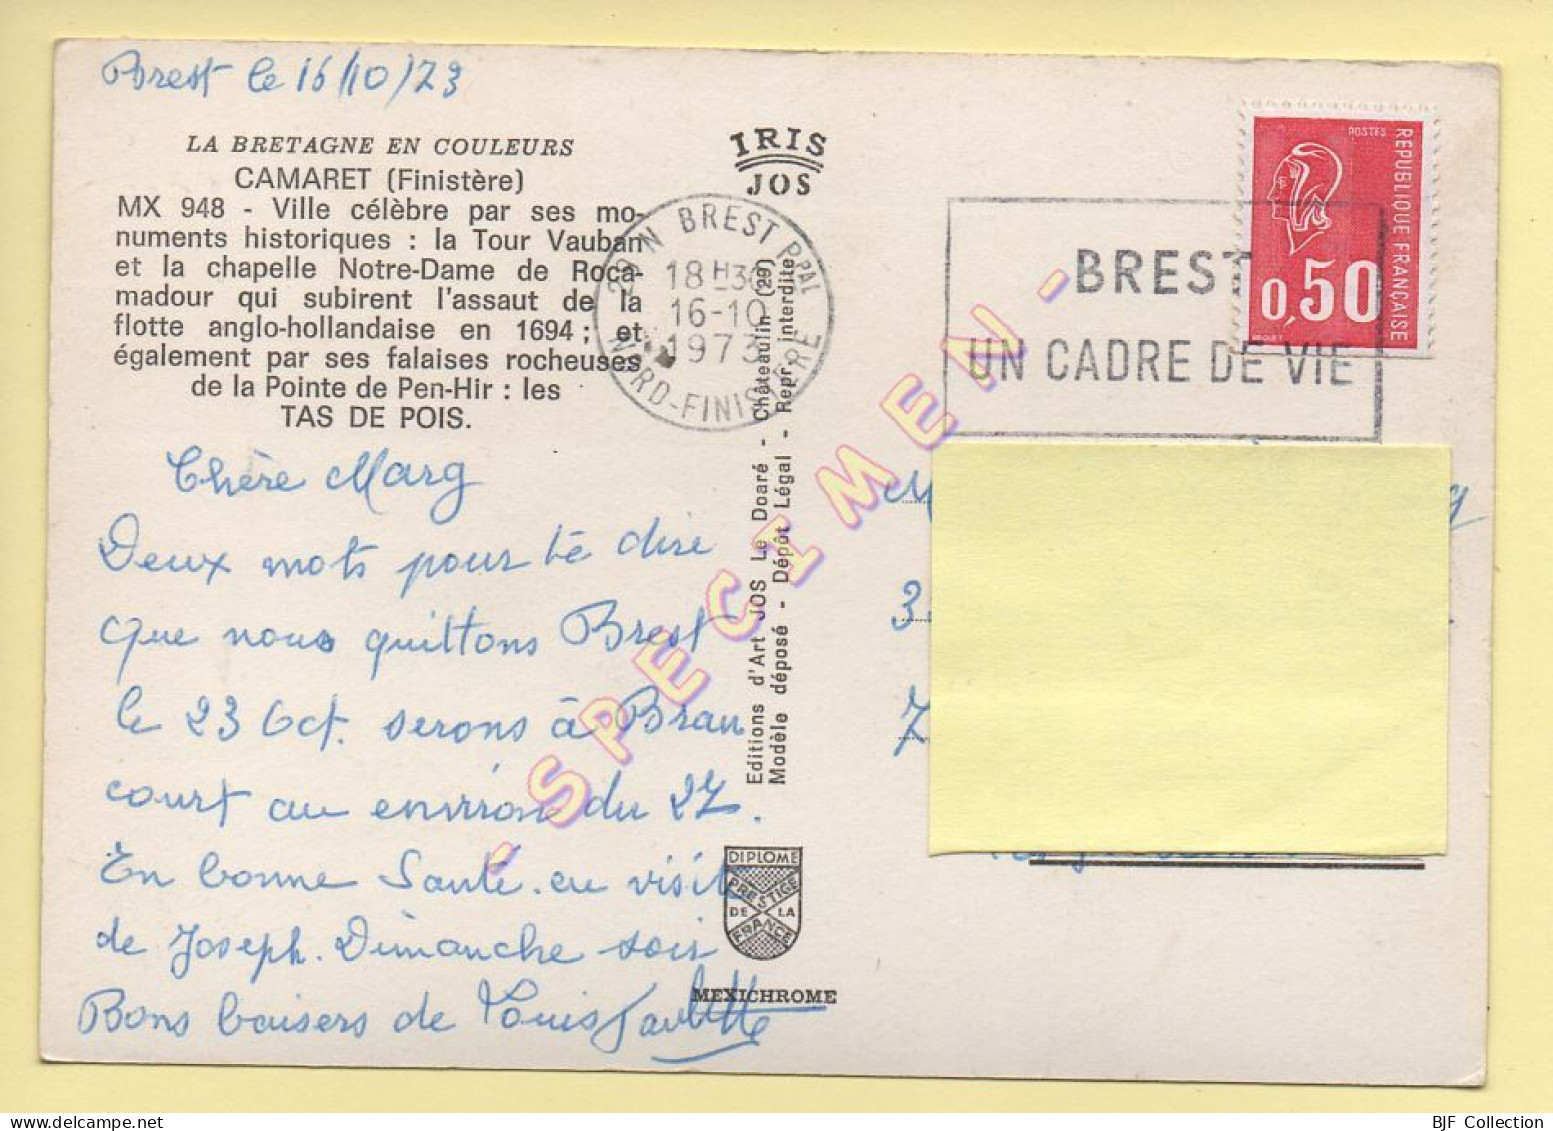 Brest le 16/10/73
LA BRETAGNE EN COULEURS
CAMARET (Finistère)
MX 948 - Ville célèbre par ses mo-
numents historiques : la Tour Vauban
et la chapelle Notre-Dame de Roca-
madour qui subirent l'assaut de la
flotte anglo-hollandaise en 1694 ; et
également par ses falaises rocheuses
de la Pointe de Pen-Hir : les
TAS DE POIS.
Chère Marg
Deux mots pour te dire
que nous quittons Brest
le 23 Oct. serons à Bran
court au environ du 27.
En bonne Santé. eu visite
de Joseph. Dimanche soir
Bons baisers de Louis Paulette
IRIS
JOS
29 N BREST PPAL
18 H30
16-10
1973
NORD-FINISTERE
Editions d'Art JOS Le Doaré - Châteaulin (29)
Modèle déposé - Dépôt Légal - Repr. interdite
- SPECIMEN -
DIPLOME
PRESTIGE
DE LA
FRANCE
MEXICHROME
BREST
UN CADRE DE VIE
POSTES
REPUBLIQUE FRANÇAISE
0,50
BJF Collection